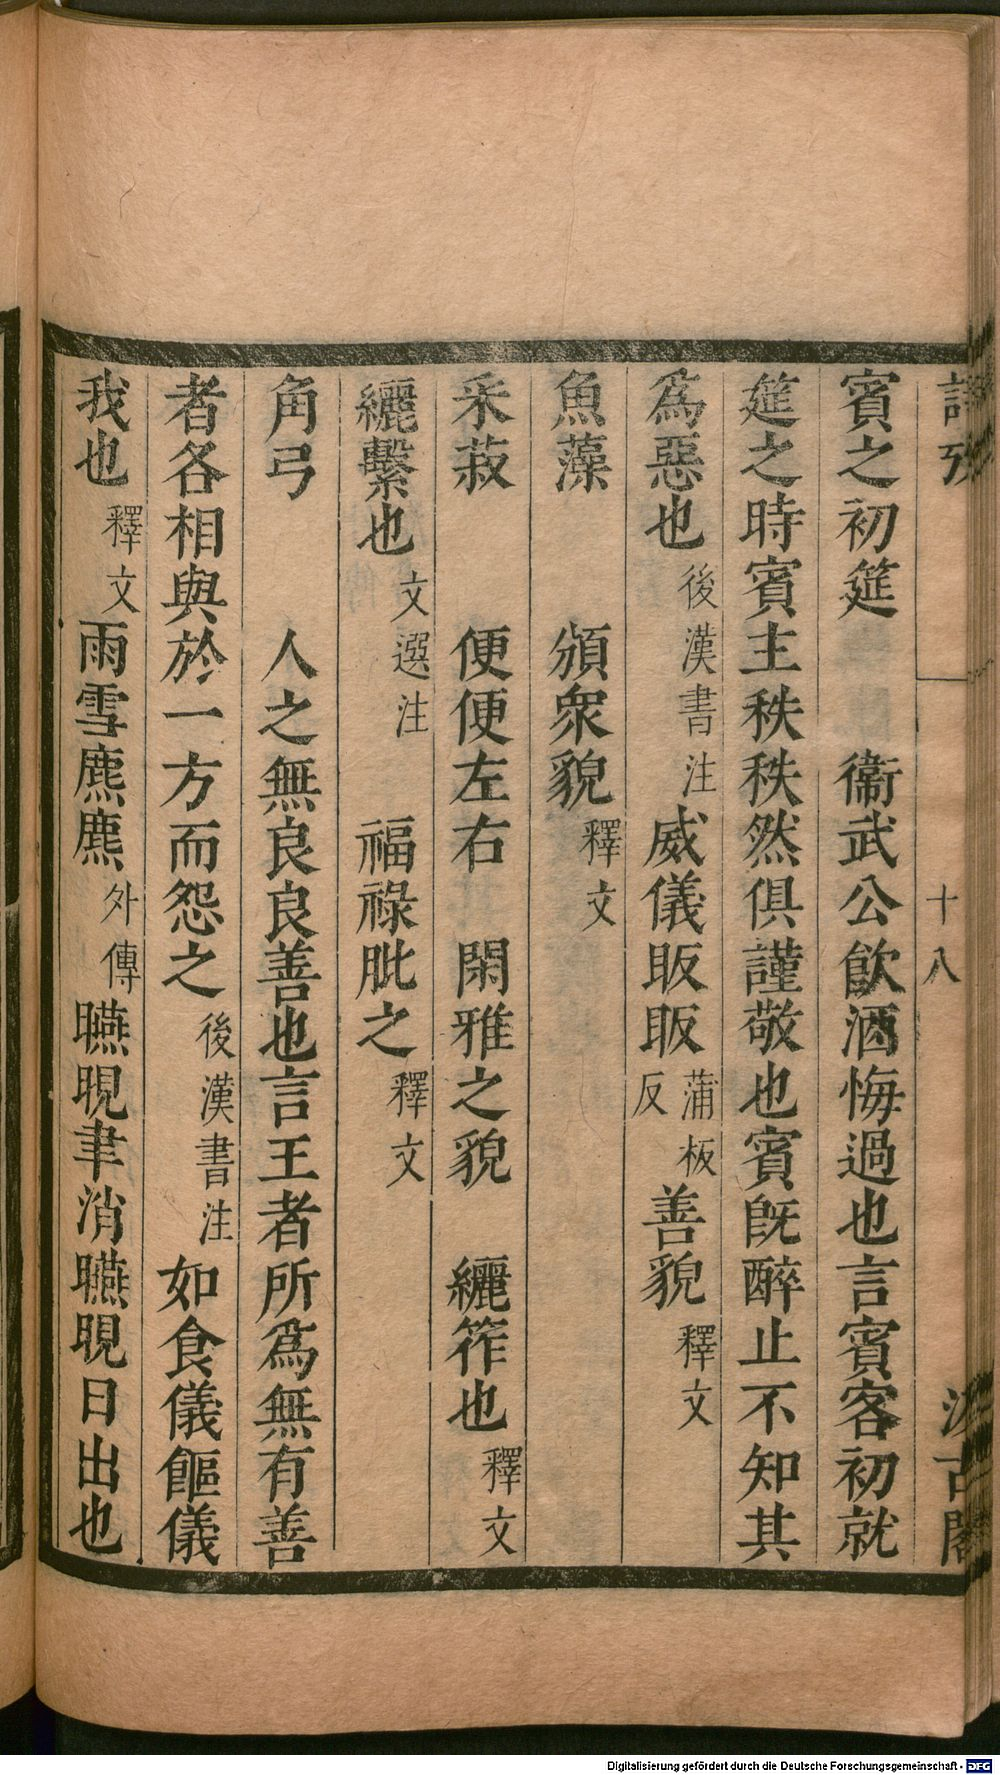 詩攷 十八 汲古閣
賓之初筵 衞武公飮酒悔過也言賓客初就
筵之時賓主秩秩然俱謹敬也賓旣醉止不知其
爲惡也後漢書注威儀昄昄蒲板反善貌釋文
魚藻 頒衆貌釋文
采菽 便便左右 閑雅之貌 纚筰也釋文
纚繫也文選注 福祿肶之釋文
角弓 人之無良良善也言王者所爲無有善
者各相與於一方而怨之後漢書注如食儀饇儀
我也釋文雨雪麃麃外傳曣晛聿消曣晛日出也
Digitalisierung gefördert durch die Deutsche Forschungsgemeinschaft - DFG